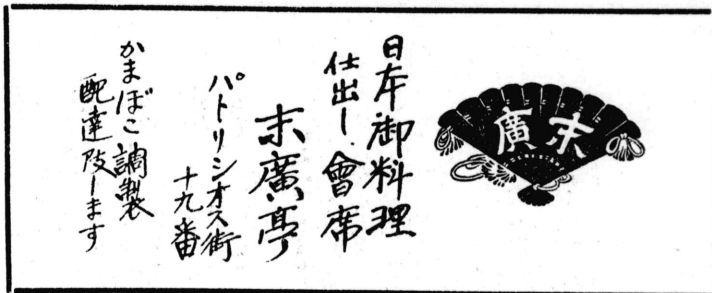 末廣
日本御料理
仕出し、會席
末廣亭
パトリシオス街
十九番
かまぼこ調製
配達致します